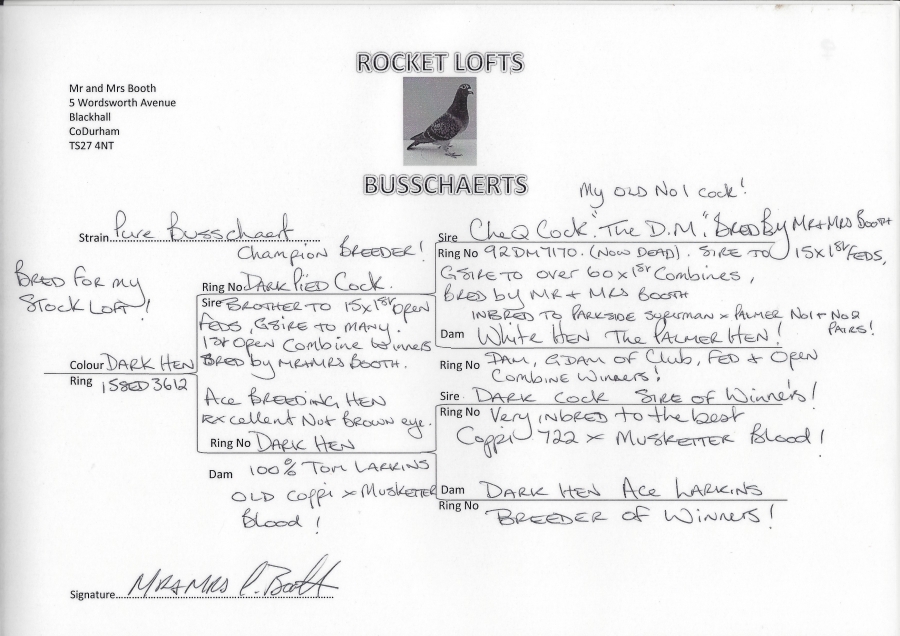 ROCKET LOFTS
Mr and Mrs Booth
5 Wordsworth Avenue
Blackhall
CoDurham
TS27 4NT
BUSSCHAERTS
My OLD No1 cock!
Strain Pure Busschaert
Champion BREEDER!
BRED FOR my
STOCK LOFT!
Ring No DARK PIED COCK.
Sire BROTHER TO 15x1st OPEN
FEDS, GSIRE TO MANY.
1st OPEN Combine Winners
BRED by MR+MRS BOOTH.
Colour DARK HEN
Ring 15SED3612
Ace BREEDING HEN
Excellent Nut Brown eye.
Ring No DARK HEN
Dam 100% TOM LARKINS
OLD Coppi x MUSKETTER
Blood!
Sire CheQ Cock "The D.M". BRED By MR+MRS BOOTH
Ring No 92DM7170. (NOW DEAD). SIRE TO 15x1st FEDS,
GSIRE TO over 60x1st Combines,
BRED by MR + MRS BOOTH
INBRED TO PARKSIDE SUPERMAN x PALMER No1 + No2
PAIRS!
Dam White HEN The PALMER HEN!
Ring No DAM, GDAM OF Club, FED + OPEN
COMBINE WINNERS!
Sire DARK COCK SIRE OF WINNERS!
Ring No Very INBRED to the best
Coppi 722 x MUSKETTER Blood!
Dam DARK HEN Ace LARKINS
Ring No BREEDER OF WINNERS!
Signature MR+MRS P. Booth